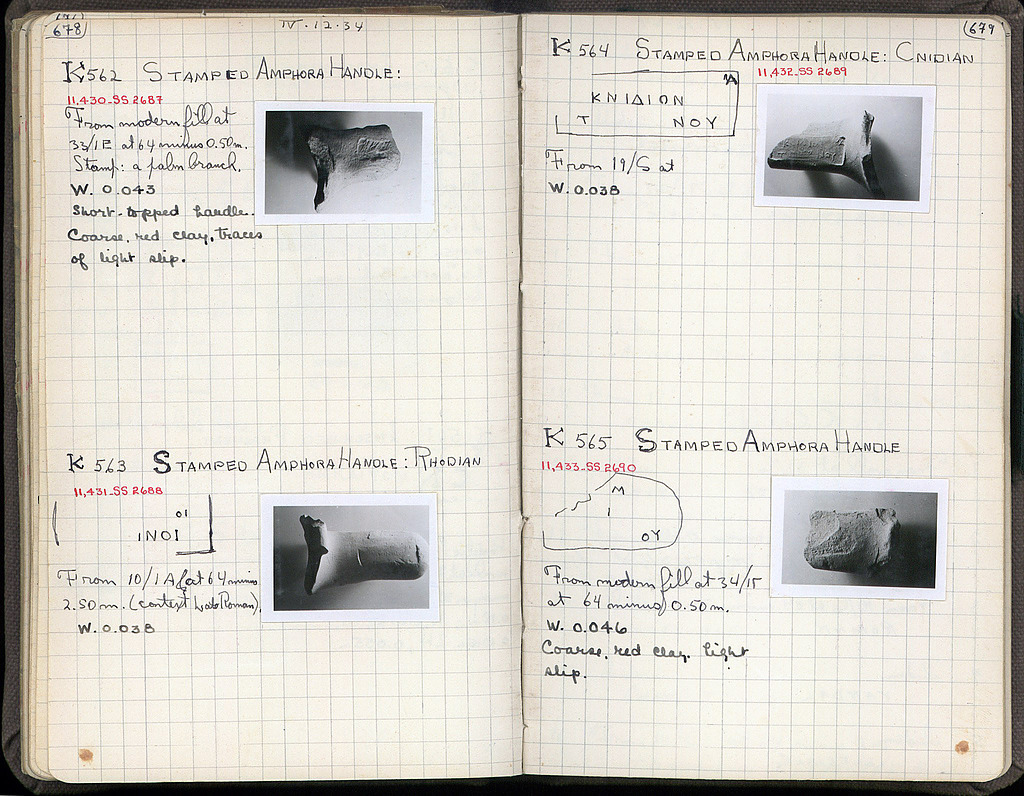 678
IV.12.34
K 562 STAMPED AMPHORA HANDLE:
11,430-SS 2687
From modern fill at
33/ΙΕ at 64 minus 0.50m.
Stamp: a palm branch.
W. 0.043
Short-topped handle.
Coarse, red clay, traces
of light slip.
K 563 STAMPED AMPHORA HANDLE: RHODIAN
11,431-SS 2688
ΟΙ
ΙΝΟΙ
From 10/ΙΑ at 64 minus
2.50 m. (context Late Roman).
W. 0.038
679
K 564 STAMPED AMPHORA HANDLE: CNIDIAN
11,432-SS 2689
Α
ΚΝΙΔΙΟΝ
Τ ΝΟΥ
From 19/S at
W. 0.038
K 565 STAMPED AMPHORA HANDLE
11,433-SS 2690
Μ
Ι
ΟΥ
From modern fill at 34/ΙΓ
at 64 minus 0.50 m.
W. 0.046
Coarse, red clay. light
slip.